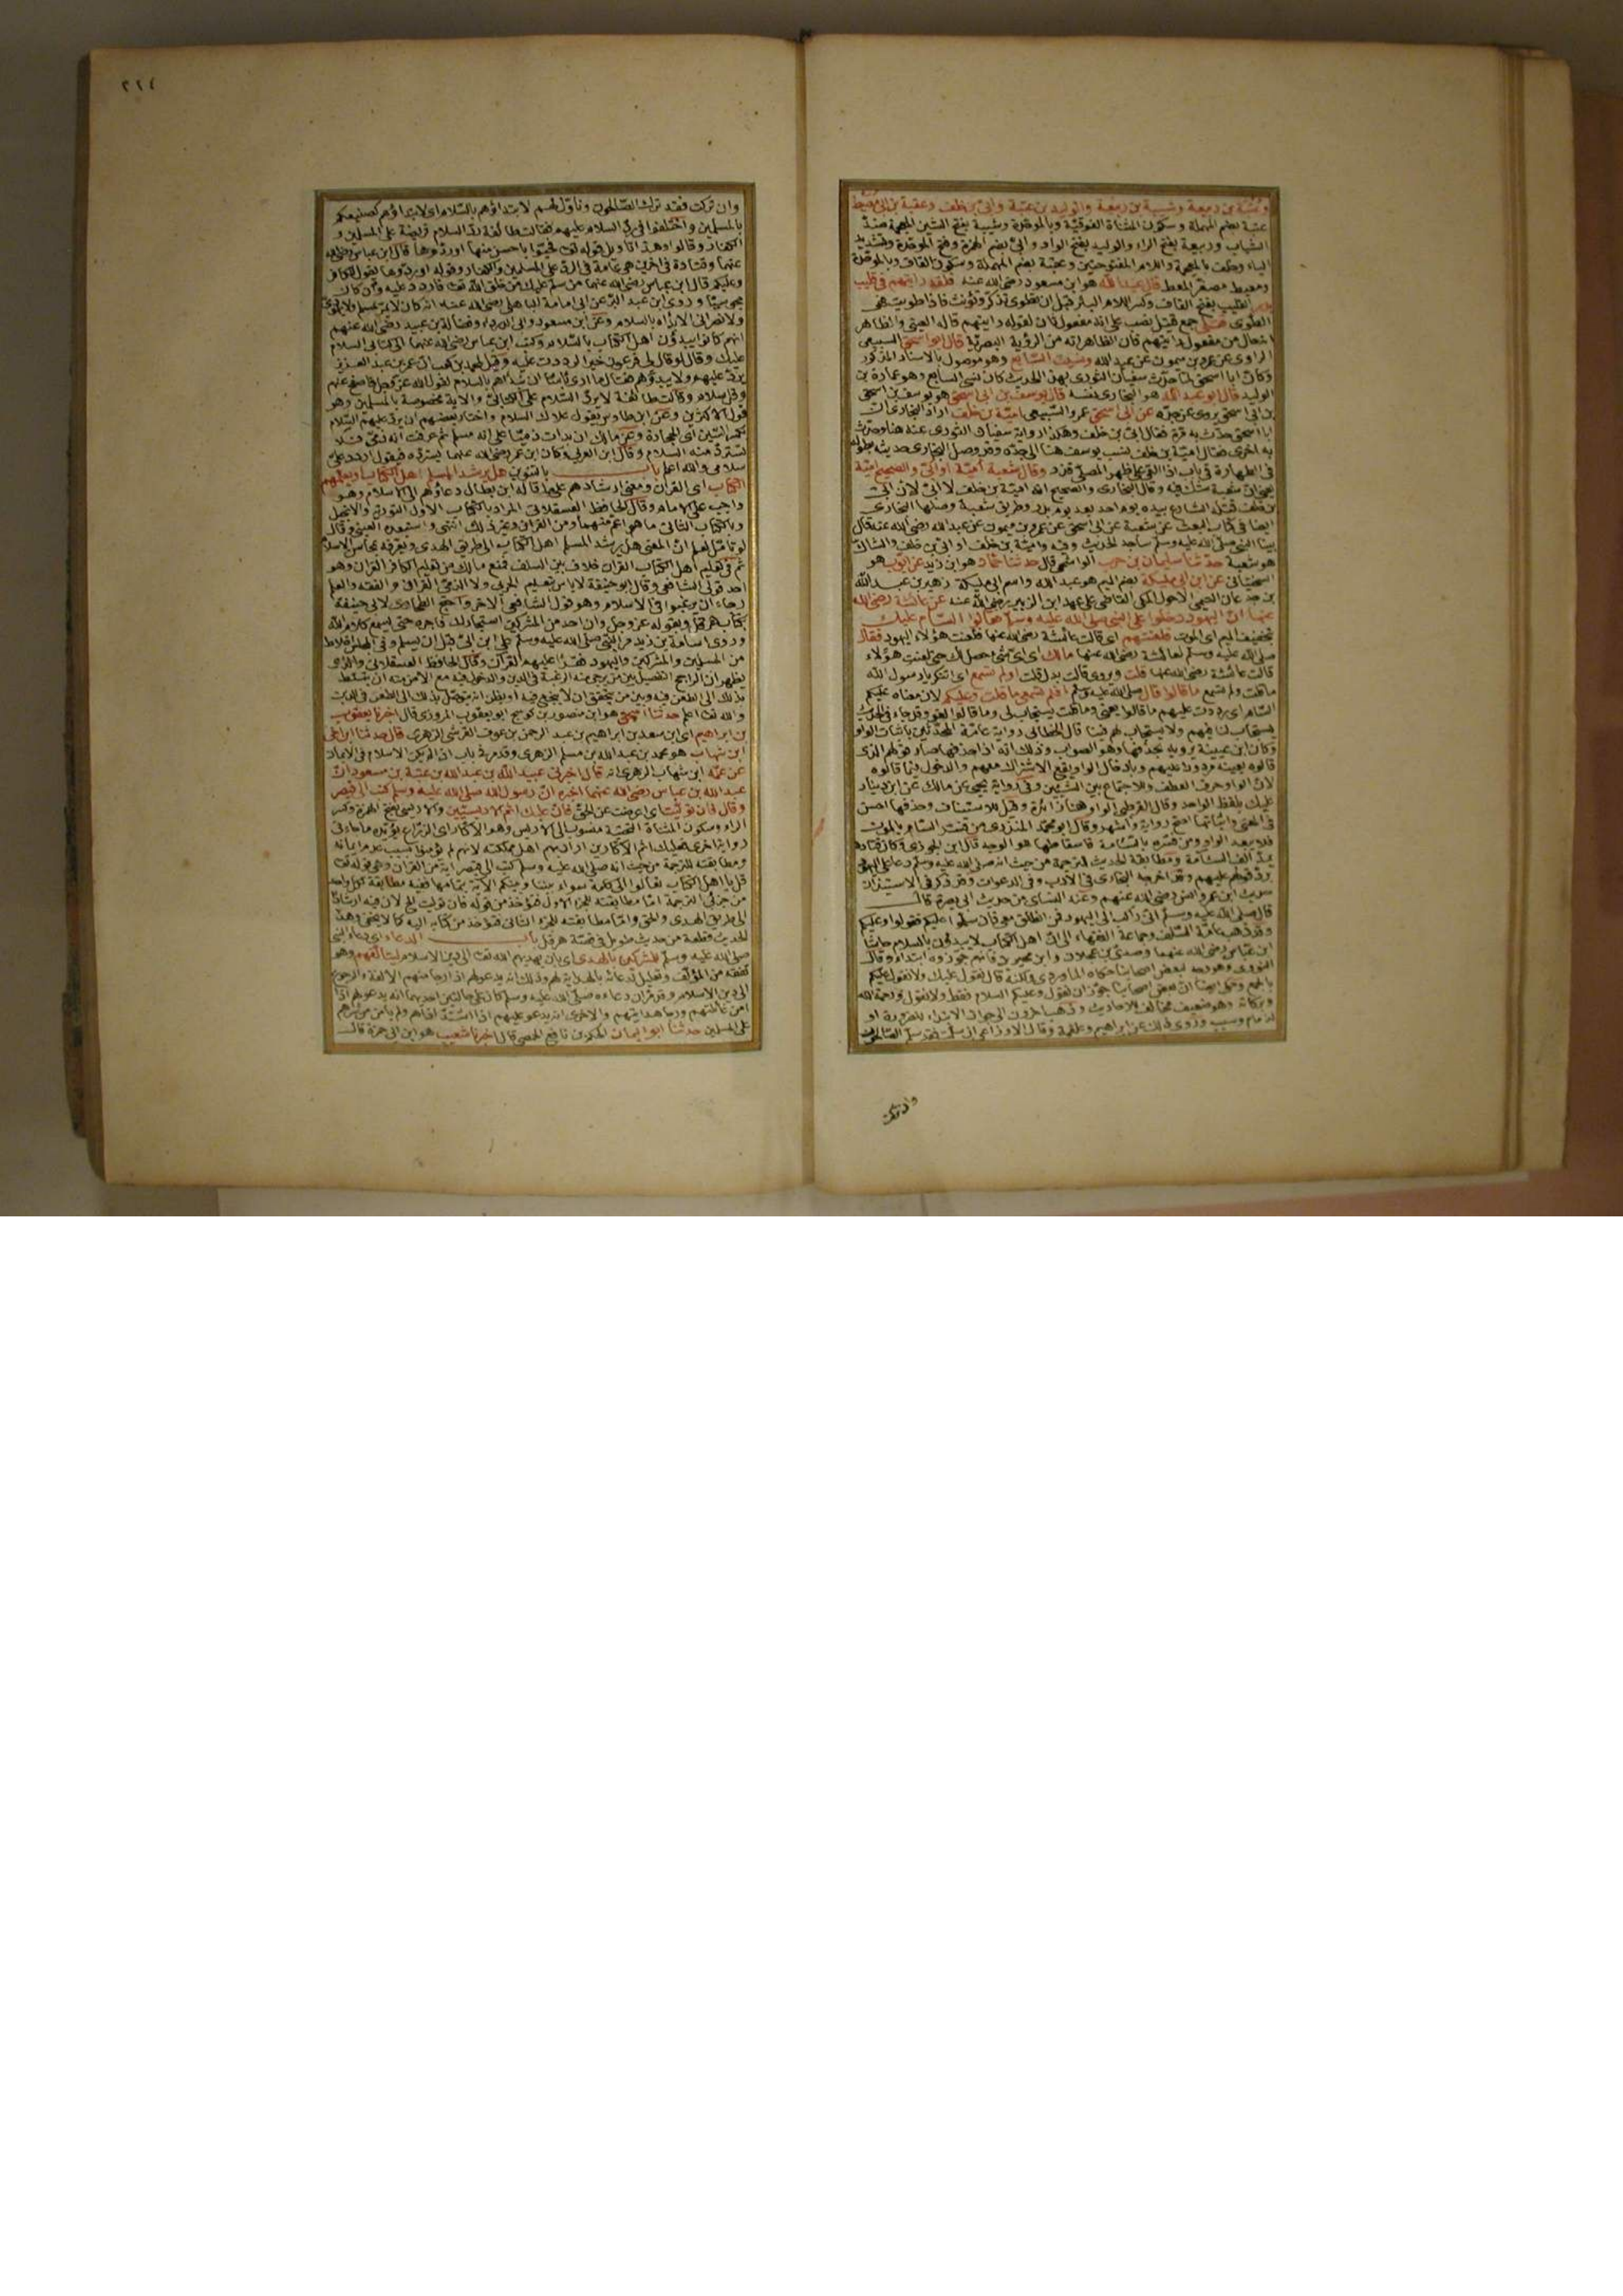 وعتبة بن ربيعة وشيبة بن ربيعة والوليد بن عتبة وابي بن خلف وعقبة بن ابي معيط
عتبة بضم المهملة وسكون المثناة الفوقية وبالموحدة وشيبة بفتح الشين المعجمة ضد
الشباب وربيعة بفتح الراء والوليد بفتح الواو وابي بضم الهمزة وفتح الموحدة وتشديد
الياء وخلف بالمعجمة واللام المفتوحتين وعقبة بضم المهملة وسكون القاف وبالموحدة
ومعيط مصغر المعط قال عبد الله هو ابن مسعود رضى الله عنه فلقد رايتهم في قليب
بدر القليب بفتح القاف وكسر اللام البئر قبل ان تطوى تذكر وتؤنث فاذا طويت فهى
الطوى قتلى جمع قتيل نصب على انه مفعول ثان لقوله رايتهم قاله العينى والظاهر
انه حال من مفعول رايتهم فان الظاهر انه من الرؤية البصرية قال ابو اسحق السبيعى
الراوى عن عمرو بن ميمون عن عبد الله ونسيت السابع وهو موصول بالاسناد المذكور
وكان ابا اسحق لما حدث سفيان الثورى بهذا الحديث كان نسى السابع وهو عمارة بن
الوليد قال ابو عبد الله هو البخارى نفسه قال يوسف بن ابى اسحق هو يوسف بن اسحق
بن ابى اسحق يروى عن جده عن ابى اسحق عمرو السبيعى امية بن خلف اراد البخارى ان
ابا اسحق حدث به مرة فقال ابى بن خلف وهكذا رواية سفيان الثورى عنه هنا وحدث
به اخرى فقال امية بن خلف نسب يوسف هنا الى جده وقد وصل البخارى حديثه بطوله
في الطهارة في باب اذا القى على ظهر المصلى قذر وقال شعبة امية او ابى والصحيح امية
يعنى ان شعبة شك فيه وقال البخارى والصحيح انه امية بن خلف لا ابى لان ابى
بن خلف قتله الشارع بيده يوم احد بعد يوم بدر وطريق شعبة وصلها البخارى
ايضا في كتاب المبعث عن شعبة عن ابى اسحق عن عمرو بن ميمون عن عبد الله رضى الله عنه قال
بينا النبى صلى الله عليه وسلم ساجد الحديث وفيه وامية بن خلف او ابى بن خلف والشاك
هو شعبة حدثنا سليمان بن حرب الواشحى قال حدثنا حماد هو ابن زيد عن ايوب هو
السختيانى عن ابن ابى مليكة بضم الميم هو عبد الله واسم ابى مليكة زهير بن عبد الله
بن جدعان التيمى الاحول المكى القاضى على عهد ابن الزبير رضى الله عنه عن عائشة رضى الله
عنها ان اليهود دخلوا على النبى صلى الله عليه وسلم فقالوا السام عليك
بتخفيف الميم اى الموت فلعنتهم اى قالت عائشة رضى الله عنها فلعنت هؤلاء اليهود فقال
صلى الله عليه وسلم لعائشة رضى الله عنها مالك اى اى شئ حصل لك حتى لعنت هؤلاء
قالت عائشة رضى الله عنها قلت ويروى قالت بدل قلت اولم تسمع اى اتنكر يا رسول الله
ما قلت ولم تسمع ما قالوا قال صلى الله عليه وسلم افلم تسمعى ما قلت وعليكم لان معناه عليكم
السام اى رددت عليهم ما قالوا يعنى وما قلت يستجاب لى وما قالوا لغو وقد جاء في الحديث
يستجاب لنا فيهم ولا يستجاب لهم فينا قال الخطابى رواية عامة المحدثين باثبات الواو
وكان ابن عيينة يرويه بحذفها وهو الصواب وذلك انه اذا حذفها صار قولهم الذى
قالوه بعينه مردودا عليهم وبادخال الواو يقع الاشتراك معهم والدخول فيما قالوه
لان الواو حرف العطف والاجتماع بين الشيئين وفي رواية يحيى عن مالك عن ابن دينار
عليك بلفظ الواحد وقال القرطبى الواو هنا زائدة وقيل للاستيناف وحذفها احسن
في المعنى واثباتها اصح رواية واشهر وقال ابو محمد المنذرى من فسر السام بالموت
فلا يبعد الواو ومن فسره بالسامة فاسقاطها هو الوجه قال ابن الجوزى وكان قتادة
يمد الف السامة ومطابقة الحديث للترجمة من حيث انه صلى الله عليه وسلم دعا على اليهود
برد قولهم عليهم وقد اخرجه البخارى في الادب وفي الدعوات وقد ذكر في الاستيذان
حديث ابن عمر وانس رضى الله عنهم وعند النسائى من حديث ابى بصرة قال
قال صلى الله عليه وسلم انى راكب الى اليهود فمن انطلق معى فان سلموا عليكم فقولوا وعليكم
وقد ذهب عامة السلف وجماعة الفقهاء الى ان اهل الكتاب لا يبدؤن بالسلام حاشا
ابن عباس رضى الله عنهما وصدى بن عجلان وابن محيريز فانهم جوزوه ابتداء وقال
النووى وهو وجه لبعض اصحابنا حكاه الماوردى ولكنه قال يقول عليك ولا يقول عليكم
بالجمع وحكى ايضا ان بعض اصحابنا جوز ان يقول وعليكم السلام فقط ولا يقول ورحمة الله
وبركاته وهو ضعيف مخالف للاحاديث وذهب اخرون الى جواز الابتداء للضرورة او
لذمام وسبب وروى ذلك عن ابراهيم وعلقمة وقال الاوزاعى ان سلمت فقد سلم الصالحون
وان تركت
٢١٤
وان تركت فقد ترك الصالحون وتأول لهم لا ابتداؤهم بالسلام اى لا ابتداؤهم كصنيعكم
بالمسلمين واختلفوا في رد السلام عليهم فقالت طائفة رد السلام فريضة على المسلمين و
الكفار وقالوا وهذا تأويل قوله تعالى فحيوا باحسن منها او ردوها قال ابن عباس رضى الله
عنهما وقتادة في اخرين هى عامة في الرد على المسلمين والكفار وقوله او ردوها يقول للكافر
وعليكم قال ابن عباس رضى الله عنهما من سلم عليك من خلق الله تعالى فاردد عليه وان كان
مجوسيا وروى ابن عبد البر عن ابى امامة الباهلى رضى الله عنه انه كان لا يمر بمسلم ولا يهودى
ولا نصرانى الا بدأه بالسلام وعن ابن مسعود وابى الدرداء وفضالة بن عبيد رضى الله عنهم
انهم كانوا يبدؤن اهل الكتاب بالسلام وكتب ابن عباس رضى الله عنهما الى كتابى السلام
عليك وقال لو قال لى فرعون خيرا لرددت عليه وقيل لمحمد بن كعب ان عمر بن عبد العزيز
يرد عليهم ولا يبدؤهم فقال ما ارى بأسا ان نبدأهم بالسلام لقول الله عز وجل فاصفح عنهم
وقل سلام وقالت طائفة لا يرد السلام على الكتابى والاية مخصوصة بالمسلمين وهو
قول الاكثرين وعن ابن طاوس يقول علاك السلام واختار بعضهم ان يرد عليهم السلام
بكسر السين اى الحجارة وعن مالك ان بدأت ذميا على انه مسلم ثم عرفت انه ذمى فلا
تسترد منه السلام وقال ابن العربى وكان ابن عمر رضى الله عنهما يسترده فيقول اردد على
سلامى والله اعلم باب بالتنوين هل يرشد المسلم اهل الكتاب او يعلمهم
الكتاب اى القران ومعنى ارشادهم على ما قاله ابن بطال دعاؤهم الى الاسلام وهو
واجب على الامام وقال الحافظ العسقلانى المراد بالكتاب الاول التورية والانجيل
وبالكتاب الثانى ما هو اعم منهما ومن القران وغير ذلك انتهى واستبعده العينى وقال
لو تامل لعلم ان المعنى هل يرشد المسلم اهل الكتاب الى طريق الهدى ويعرفه بمحاسن الاسلام
ثم في تعليم اهل الكتاب القران خلاف بين السلف فمنع مالك من تعليم الكافر القران وهو
احد قولى الشافعى وقال ابو حنيفة لا باس بتعليم الحربى والذمى القران والفقه والعلم
رجاء ان يرغبوا في الاسلام وهو قول الشافعى الاخر واحتج الطحاوى لابى حنيفة
بكتاب هرقل وبقوله عز وجل وان احد من المشركين استجارك فاجره حتى يسمع كلام الله
وروى اسامة بن زيد مر النبى صلى الله عليه وسلم على ابن ابى قبل ان يسلم وفي المجلس اخلاط
من المسلمين والمشركين واليهود فقرأ عليهم القرآن وقال الحافظ العسقلانى والذى
يظهر ان الراجح التفصيل بين من يرجى منه الرغبة في الدين والدخول فيه مع الامن منه ان يتسلط
بذلك الى الطعن فيه وبين من يتحقق ان لا ينجع فيه او يظن انه يتوصل بذلك الى الطعن في الدين
والله تعالى اعلم حدثنا اسحق هو ابن منصور بن كوسج ابو يعقوب المروزى قال اخبرنا يعقوب
بن ابراهيم اى ابن سعد بن ابراهيم بن عبد الرحمن بن عوف القرشى الزهرى قال حدثنا ابن اخى
ابن شهاب هو محمد بن عبد الله بن مسلم الزهرى وقد مر في باب اذا لم يكن الاسلام في الايمان
عن عمه ابن شهاب الزهرى انه قال اخبرنى عبيد الله بن عبد الله بن عتبة بن مسعود ان
عبد الله بن عباس رضى الله عنهما اخبره ان رسول الله صلى الله عليه وسلم كتب الى قيصر
وقال فان توليت اى اعرضت عن الحق فان عليك اثم الاريسيين والاريسى بفتح الهمزة وكسر
الراء وسكون المثناة التحتية منسوب الى الاريس وهو الاكار اى الزراع يؤيده ما جاء في
رواية اخرى فعليك اثم الاكارين اراد بهم اهل مملكته لانهم لم يؤمنوا بسبب عدم ايمانه
ومطابقته للترجمة من حيث انه صلى الله عليه وسلم كتب الى قيصر اية من القران وهى قوله تعالى
قل يا اهل الكتاب تعالوا الى كلمة سواء بيننا وبينكم الآية بتمامها ففيه مطابقة لكل واحد
من جزئى الترجمة اما مطابقته للجزء الاول فتؤخذ من قوله فان توليت الخ لان فيه ارشادا
الى طريق الهدى والحق واما مطابقته للجزء الثانى فتؤخذ من كتابه اليه كما لا يخفى وهذا
الحديث قطعة من حديث طويل في قصة هرقل باب الدعاء اى دعاء النبى
صلى الله عليه وسلم للمشركين بالهدى اى بان يهديهم الله تعالى الى دين الاسلام ليتألفهم وهو
تفقه من المؤلف وتعليل لدعائه بالهداية لهم وذلك انه يدعو لهم اذا رجا منهم الالفة والرجوع
الى دين الاسلام وقد مر ان دعاءه صلى الله عليه وسلم كان على حالتين احديهما انه يدعو لهم اذا
امن غائلتهم ورجا هدايتهم والاخرى انه يدعو عليهم اذا اشتد اذاهم ولم يأمن من شرهم
على المسلمين حدثنا ابو اليمان الحكم بن نافع الحمصى قال اخبرنا شعيب هو ابن ابى حمزة قال